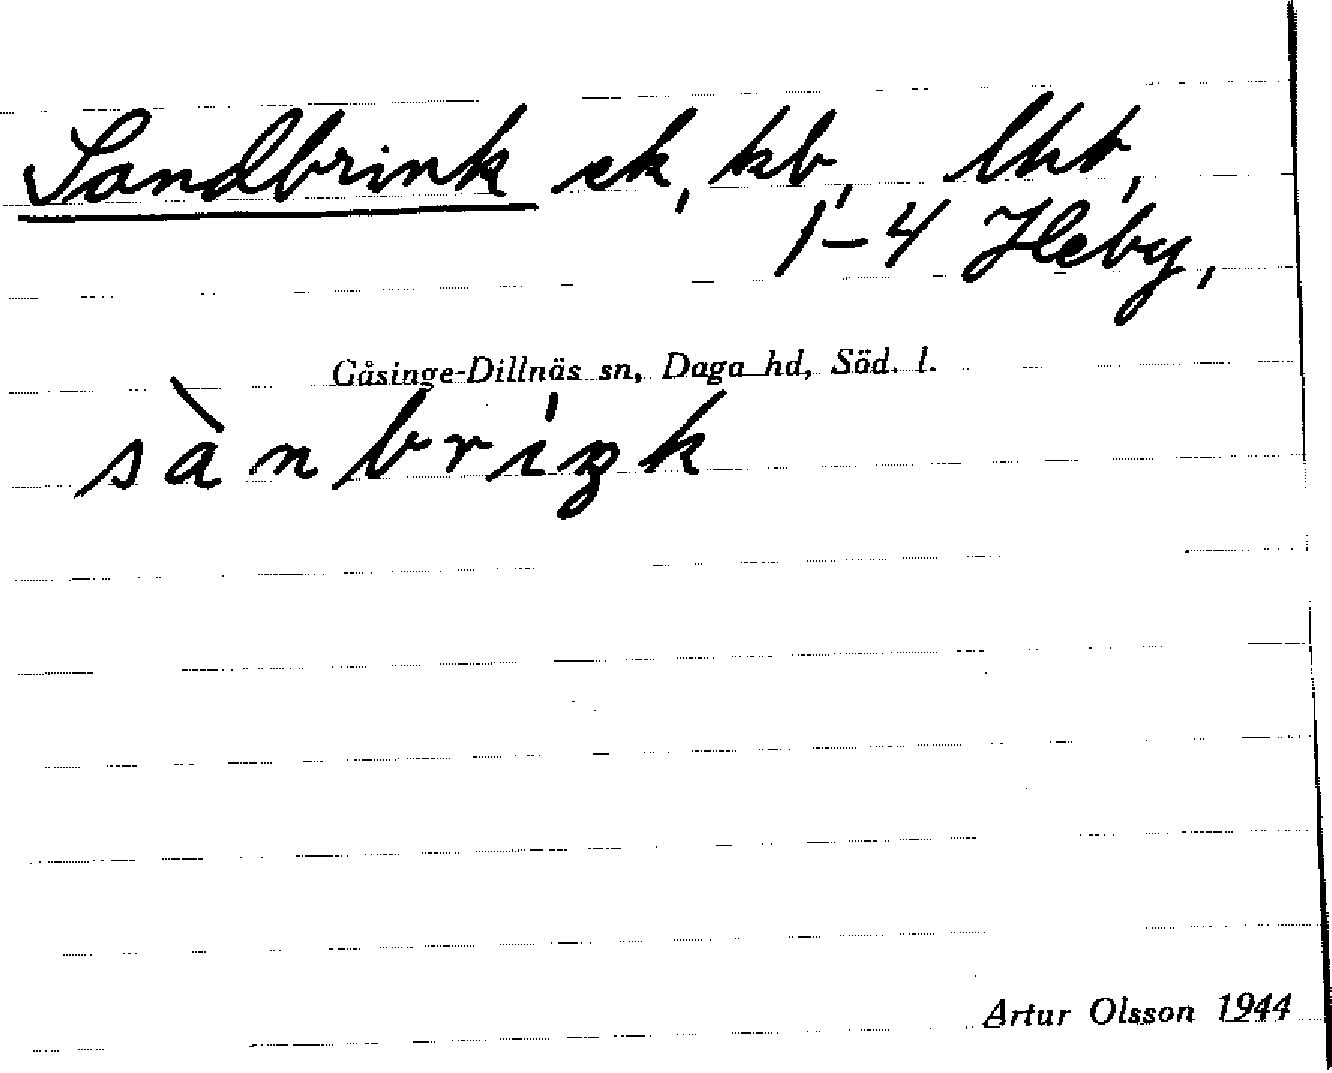 Sandbrink ek, kb, lht,
1-4 Heby,
Gåsinge-Dillnäs sn, Daga hd, Söd. l.
sànbríŋk
Artur Olsson 1944